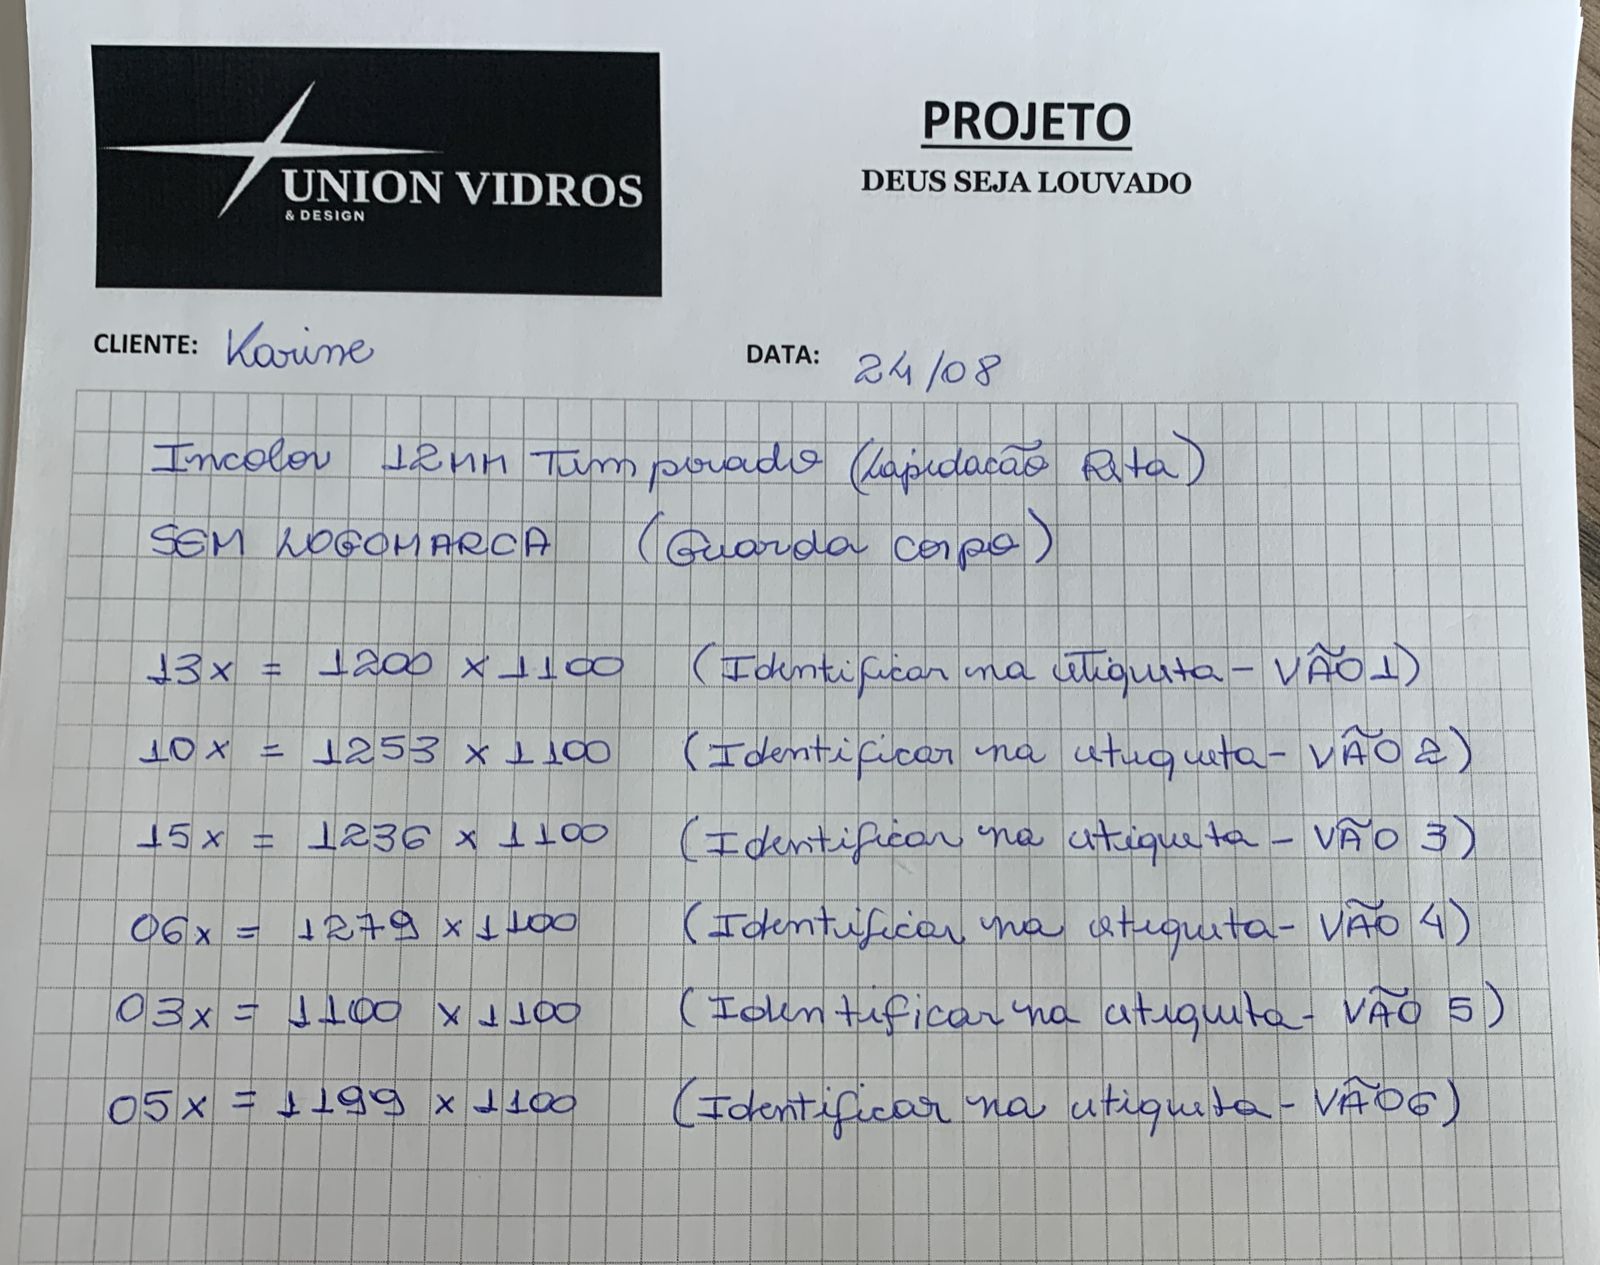 UNION VIDROS
& DESIGN
PROJETO
DEUS SEJA LOUVADO
CLIENTE: Karine
DATA: 24/08
Incolor 12mm Temperado (Lapidacão Reta)
SEM LOGOMARCA (Guarda corpo)
13x = 1200 x 1100 (Identificar na etiqueta - VÃO 1)
10x = 1253 x 1100 (Identificar na etiqueta - VÃO 2)
15x = 1236 x 1100 (Identificar na etiqueta - VÃO 3)
06x = 1279 x 1100 (Identificar na etiqueta - VÃO 4)
03x = 1100 x 1100 (Identificar na etiqueta - VÃO 5)
05x = 1199 x 1100 (Identificar na etiqueta - VÃO 6)